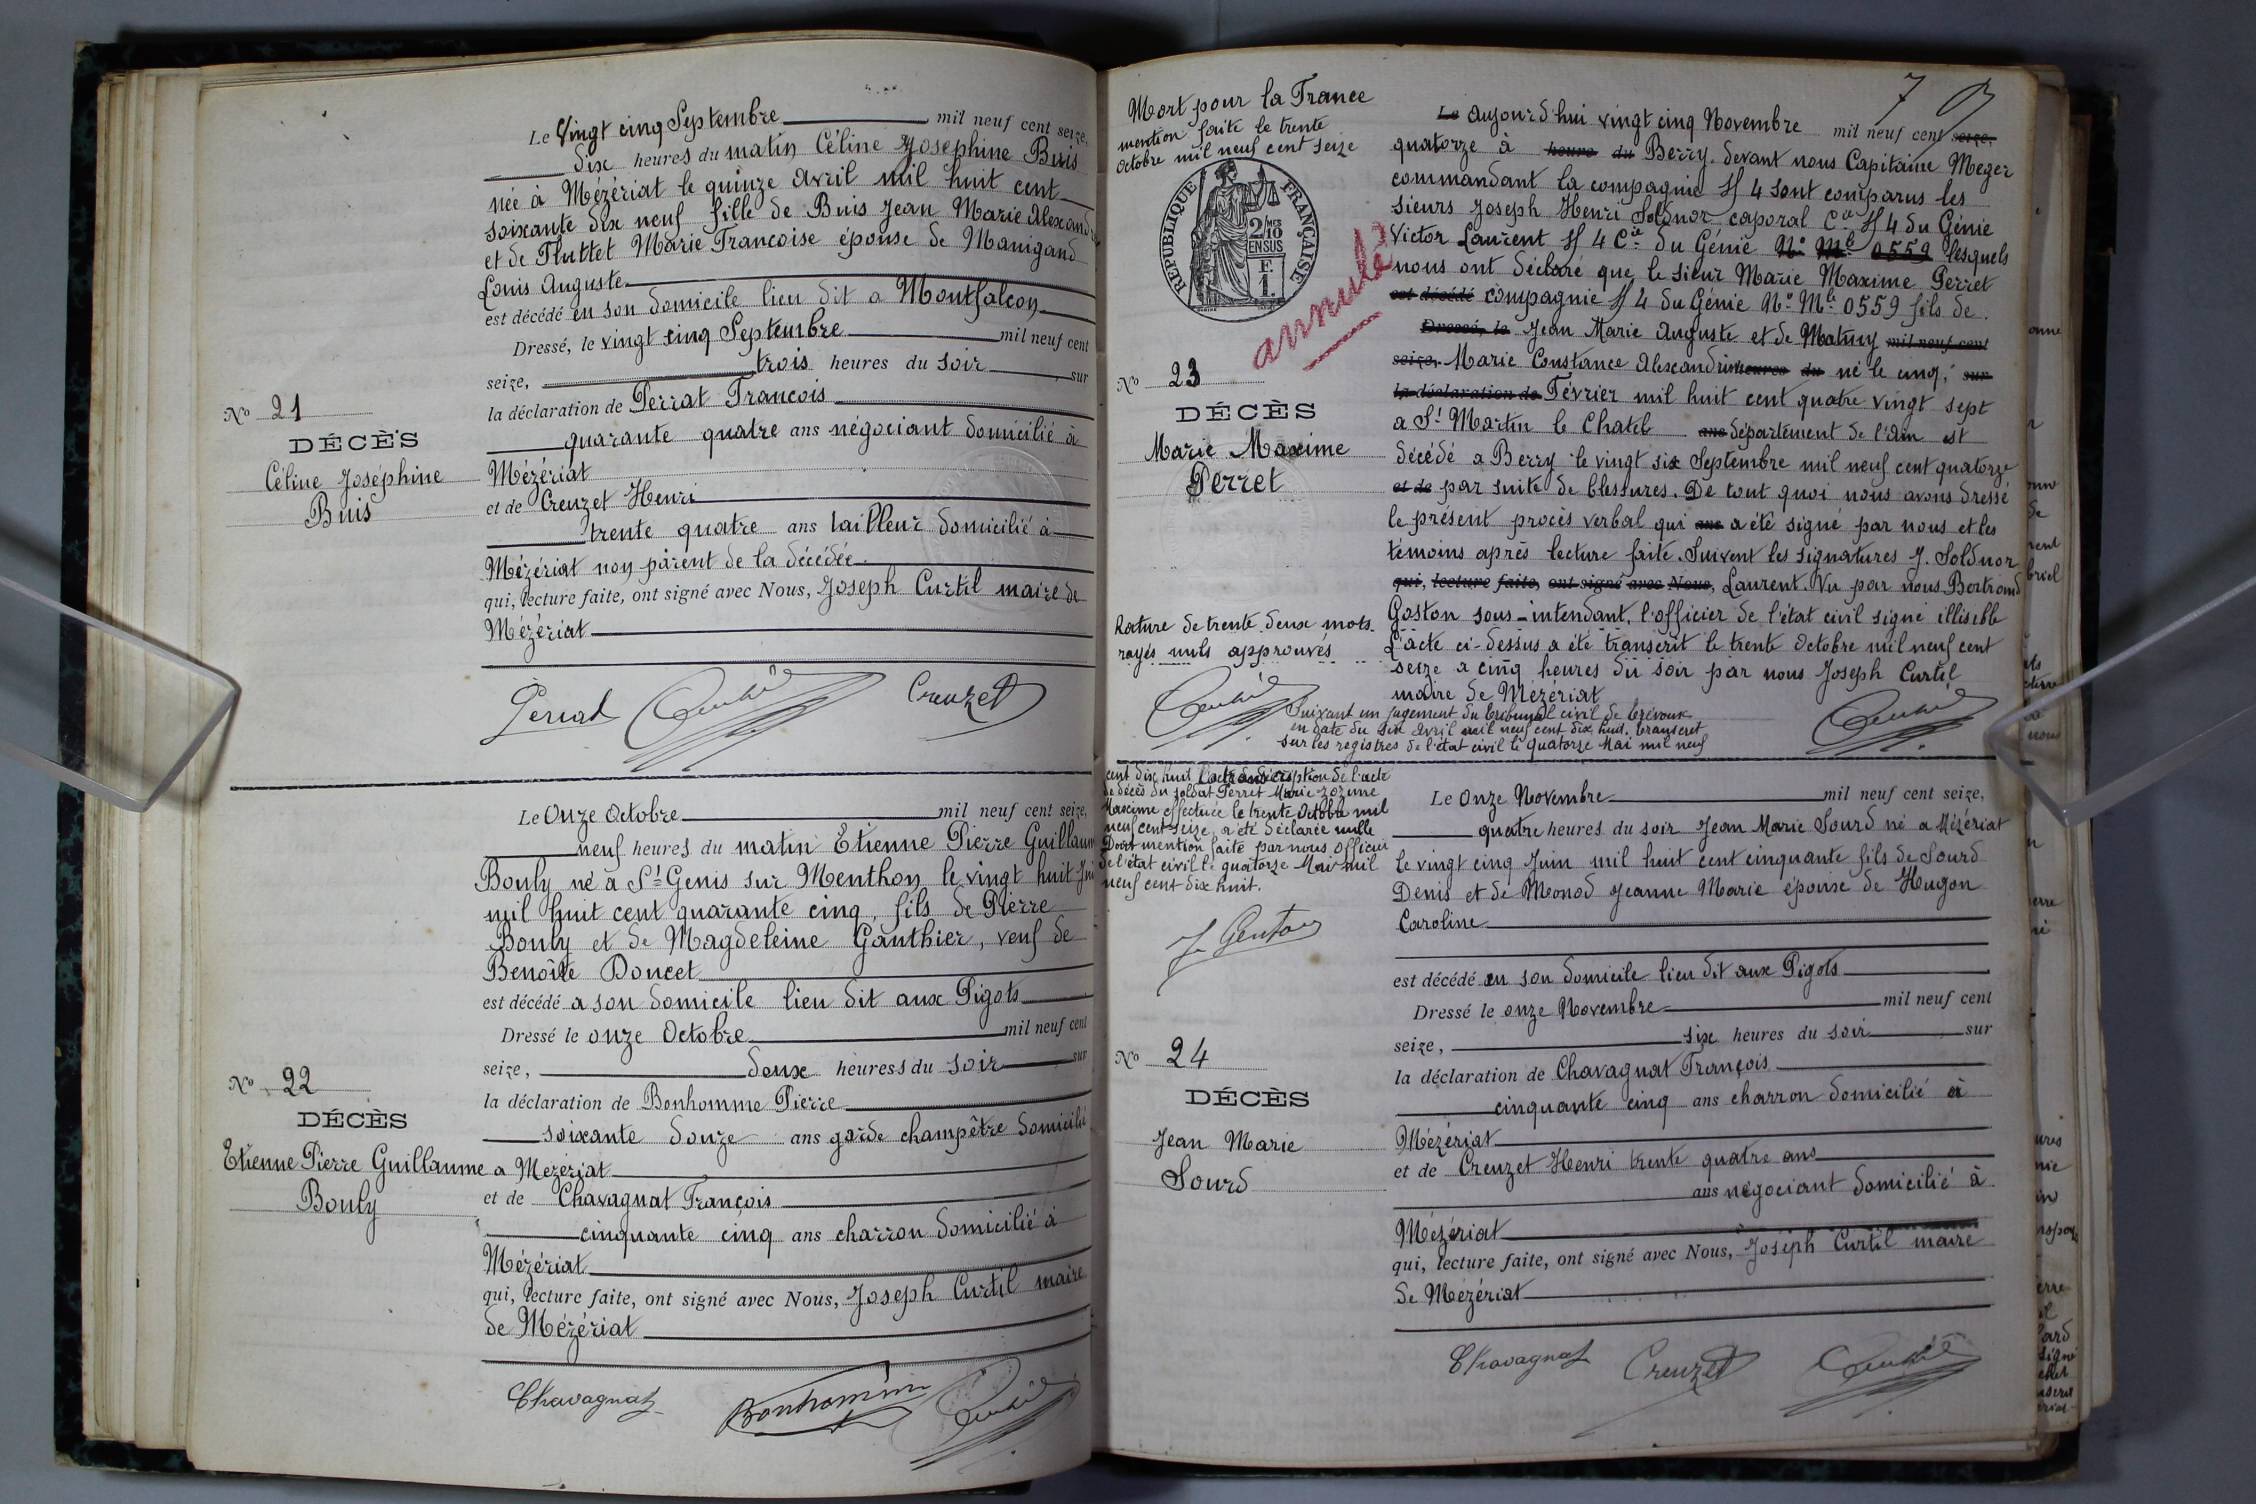 Le Vingt cinq Septembre mil neuf cent seize,
dix heures du matin Céline Joséphine Buis
née à Mézériat le quinze avril mil huit cent
soixante dix neuf fille de Buis Jean Marie Alexandre
et de Fluttet Marie Francoise épouse de Manigand
Louis Auguste
est décédé en son domicile lieu dit a Montfalcon
Dressé, le vingt cinq Septembre mil neuf cent
seize, trois heures du soir sur
la déclaration de Perrat Francois
quarante quatre ans négociant domicilié à
Mézériat
et de Creuzet Henri
trente quatre ans tailleur domicilié à
Mézériat non parent de la décédée
qui, lecture faite, ont signé avec Nous, Joseph Curtil maire de
Mézériat
Perrat Curtil Creuzet
No 21
DÉCÈS
Céline Joséphine
Buis
Le Onze Octobre mil neuf cent seize,
neuf heures du matin Etienne Pierre Guillaume
Bouly né a St Genis sur Menthon le vingt huit
mil huit cent quarante cinq, fils de Pierre
Bouly et de Magdeleine Gauthier, veuf de
Benoîte Doucet
est décédé a son domicile lieu dit aux Pigots
Dressé le onze Octobre mil neuf cent
seize, deux heures du soir sur
la déclaration de Bonhomme Pierre
soixante douze ans garde champêtre domicilié
a Mézériat
et de Chavagnat François
cinquante cinq ans charron domicilié à
Mézériat
qui, lecture faite, ont signé avec Nous, Joseph Curtil maire
de Mézériat
Chavagnat Bonhomme Curtil
No 22
DÉCÈS
Etienne Pierre Guillaume
Bouly
7
Mort pour la France
mention faite le trente
Octobre mil neuf cent seize
RÉPUBLIQUE FRANÇAISE
2/10 EN SUS
annulé
No 23
DÉCÈS
Marie Maxime
Perret
Rature de trente deux mots
rayés nuls approuvés
Curtil
Le aujourd'hui vingt cinq Novembre mil neuf cent seize,
quatorze à heure du Berry. devant nous Capitaine Meger
commandant la compagnie H 4 sont comparus les
sieurs Joseph Henri Soldnor caporal Cie H 4 du Génie
Victor Laurent H 4 Cie du Génie No Mle 0559 lesquels
nous ont déclaré que le sieur Marie Maxime Perret
est décédé compagnie H 4 du Génie No Mle 0559 fils de
Dressé, le Jean Marie Auguste et de Mathy mil neuf cent
seize, Marie Constance Alexandrine heures du né le cinq, sur
la déclaration de Février mil huit cent quatre vingt sept
a St Martin le Chatel ans département de l'Ain est
décédé a Berry le vingt six Septembre mil neuf cent quatorze
et de par suite de blessures. De tout quoi nous avons dressé
le présent procès verbal qui ans a été signé par nous et les
témoins après lecture faite. Suivent les signatures J. Soldnor
qui, lecture faite, ont signé avec Nous, Laurent. Vu par nous Bertrand
Gaston sous-intendant, l'officier de l'état civil signé illisible
L'acte ci-dessus a été transcrit le trente Octobre mil neuf cent
seize a cinq heures du soir par nous Joseph Curtil
maire de Mézériat
Curtil
Suivant un jugement du tribunal civil de Trévoux
en date du six Avril mil neuf cent dix huit, transcrit
sur les registres de l'état civil le quatorze Mai mil neuf
cent dix huit transcription de l'acte
de décès du soldat Perret Marie Zozime
Maxime effectuée le trente Octobre mil
neuf cent seize, a été déclarée nulle
Dont mention faite par nous officier
de l'état civil le quatorze Mai mil
neuf cent dix huit.
No 24
DÉCÈS
Jean Marie
Sourd
Le Onze Novembre mil neuf cent seize,
quatre heures du soir Jean Marie Sourd né a Mézériat
le vingt cinq Juin mil huit cent cinquante fils de Sourd
Denis et de Monod Jeanne Marie épouse de Hugon
Caroline
est décédé en son domicile lieu dit aux Pigots
Dressé le onze Novembre mil neuf cent
seize, six heures du soir sur
la déclaration de Chavagnat François
cinquante cinq ans charron domicilié à
Mézériat
et de Creuzet Henri trente quatre ans
ans négociant domicilié à
Mézériat
qui, lecture faite, ont signé avec Nous, Joseph Curtil maire
de Mézériat
Chavagnat Creuzet Curtil